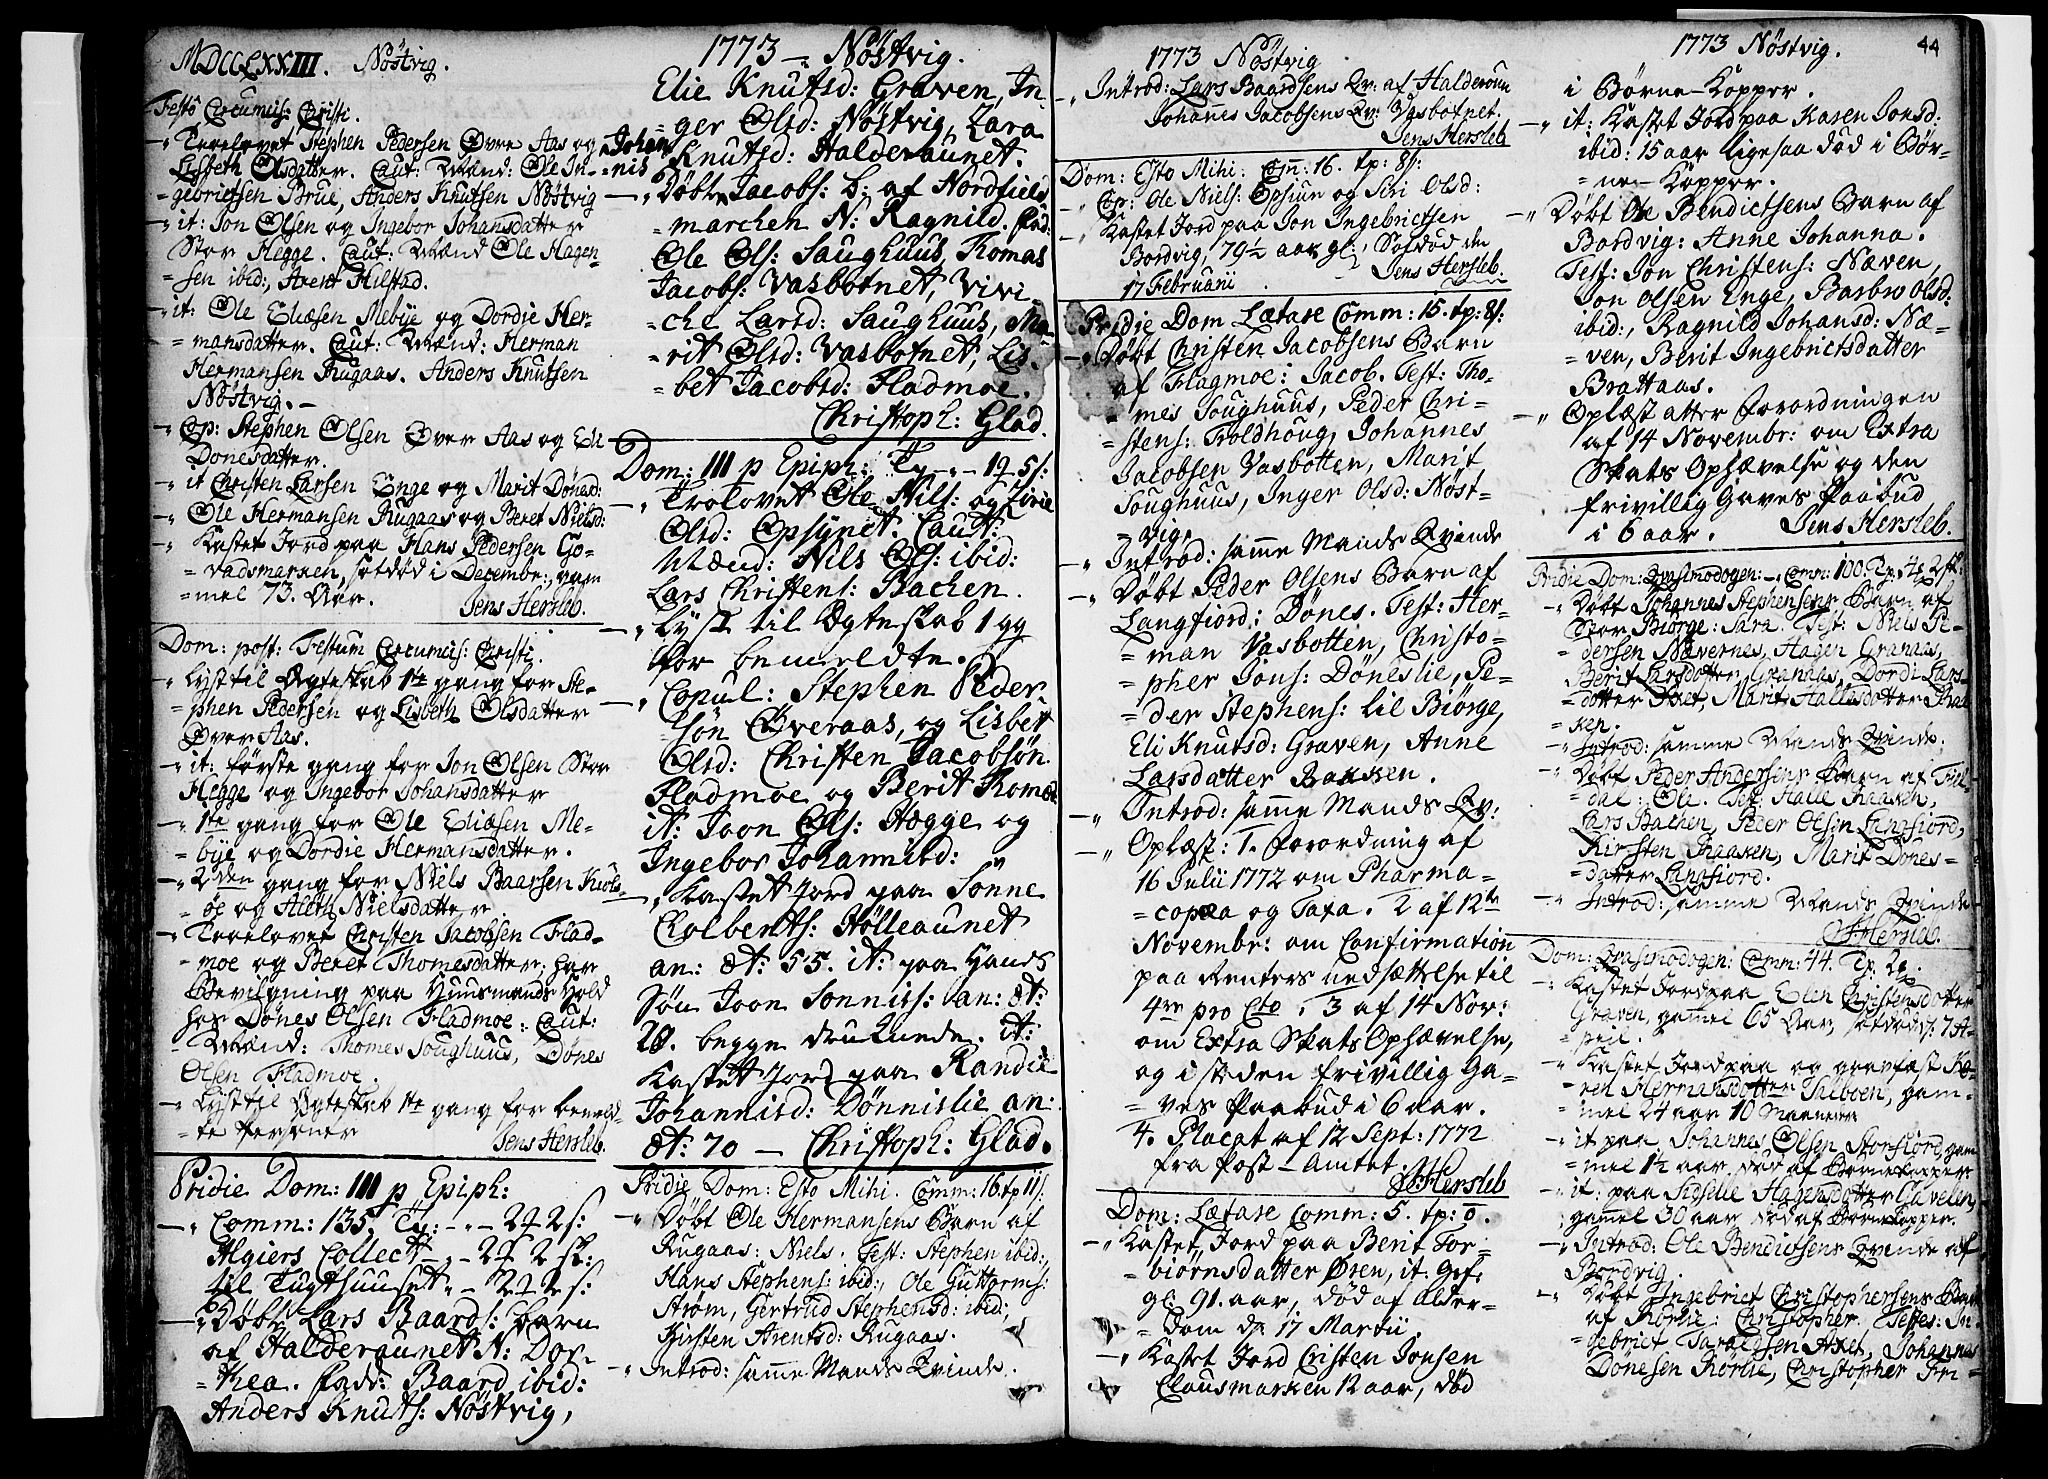 MDCCLXXIII. Nöstvig.
Festo Circumcis: Christi.
-" Trolovet Stephen Pedersen Øvre Aas og
Lisbeth Olsdatter. Caut: Mænd: Ole In-
=gebrictsen Brue, Anders Knutsen Nöstvig
-" it: Jon Olsen og Ingebor Johansdatter
Stor Hegge. Caut: Mænd Ole Hagen-
=sen ibid:, Arent Hilstad.
-" it: Ole Eliæsen Mebye og Dordie Her-
=mansdatter. Caut: Mænd: Herman
Hermansen Rugaas. Anders Knutsen
Nöstvig. -
-" Cop: Stephen Olsen Øver Aas og Eli
Donesdatter.
-" it Christen Larsen Enge og Marit Dönesd:
-" Ole Hermansen Rugaas og Beret Nielsd:
-" Kastet Jord paa Hans Pedersen Go-
=vadsmarken, sotdöd i Decembr:, gam
=mel 73. Aar. Jens Hersleb.
Dom: post: Festum Circumcis: Christi.
-" Lyst til Ægteskab 1te gang for Ste-
=phen Pedersen og Lisbeth Olsdatter
Øver Aas.
-" it: förste gang for Jon Olsen Stor
Hegge og Ingebor Johansdatter
-" 1te gang for Ole Eliæsen Me-
=bye og Dordie Hermansdatter.
-" 2den gang for Niels Baarsen
=øe og Aleth Nielsdatter
-" Trolovet Christen Jacobsen Flad-
=moe og Beret Thomesdatter, har
Bevilgning paa Huusmands Hold
hos Dönes Olsen Fladmoe. Caut:
Mænd: Thomes Soughuus, Dönes
Olsen Fladmoe.
-" Lyst til Ægteskab 1te gang for bemeld-
=te Personer Jens Hersleb.
Pridie Dom: III p Epiph:
-" Comm: 135. Tp: -"- 2 2 s:
Algiers Collect -"- 2 2 sk:
til Tugthuuset -"- 2 2 s:
-" Döbt Lars Baards: barn
af Halderaunet N: Dor-
=thea. Fadr: Baard ibid:
Anders Knuts: Nöstvig,
1773 - Nöstvig.
Elie Knutsd: Graven, In
=ger Olsd: Nöstvig, Zara
Johan
nis Knutsd: Halderaunet.
-" Döbt Jacobs: b: af Nordfield
=marchen N: Ragnild. Fad:
Ole Ols: Saughuus, Thomas
Jacobs: Vasbotnet, Vivi
=che Larsd: Saughuus, Ma
=rit Olsd: Vasbotnet, Lis
=bet Jacobsd: Fladmoe.
Christoph: Glad.
Dom: III p Epiph: Tp -"- 19 5 s:
-" Trolovet Ole Nils: og Sirie
Olsd: Opsynet. Caut:
Mænd: Nils Ols: ibid:
Lars Christens: Bachen.
-" Lyst til Ægteskab 1 gg
for bemeldte.
-" Copul: Stephen Peder
sön Øveraas, og Lisbet
Olsd: Christen Jacobsön
Fladmoe og Berit Thomæ
it: Joon Ols: Hægge og
Ingebor Johannisd:
-" Kastet Jord paa Sönne
Colbents: Hölleaunet
an: æt: 55. it: paa Hands
Sön Joon Sonnits: an: æt:
20. begge druknede. it:
Kastet Jord paa Randie
Johannisd: Dönnislie an:
æt: 70 - Christoph: Glad.
Pridie Dom: Esto Mihi. Comm: 16. tp 11 s:
-" Döbt Ole Hermansens Barn af
Rugaas: Niels. Test: Stephen ibid:,
Hans Stephens: ibid:, Ole Guttorms:
Ström, Gertrud Stephensd: ibid:,
Kirsten Arentsd: Rugaas.
-" Introd: samme Mands Qvinde.
1773 Nöstvig
-" Introd: Lars Baardsens Qv: af Halderoun
Johannes Jacobsens Qv: Vasbotnet.
Jens Hersleb
Dom: Esto Mihi. Com: 16. tp: 8 s:
-" Cop: Ole Niels: Opsiun og Siri Olsd:
-" Kastet Jord paa Jon Ingebrictsen
Bordvig, 79½ aar gl:, Sotdöd den
17 Februarii. Jens Hersleb.
Pridie Dom Lætare Comm: 15. tp: 8 s:
-" Döbt Christen Jacobsens Barn
af Flagmoe: Jacob. Test: Tho-
=mes Soughuus, Peder Chri-
=stens: Troldhoug, Johannes
Jacobsen Vasbotten, Marit
Soughuus, Inger Olsd: Nöst-
=vig.
-" Introd: samme Mands Qvinde
-" Döbt Peder Olsens Barn af
Langfiord: Dönes. Test: Her-
=man Vasbotten, Christo-
=pher Jons: Döneslie, Pe-
=der Stephens: lil Biörge,
Eli Knutsd: Graven, Anne
Larsdatter Bakken.
-" Introd: samme Mands Qv:
-" Oplæst: 1. Forordning af
16 Julii 1772 om Pharma-
=copæa og Taxa. 2 af 12te
Novembr: om Confirmation
paa Renters nedsættelse til
4re pro Cto. 3 af 14 Nor:
om Extra Skats Ophævelse,
og i steden frivillig Ga-
=ves Paabud i 6 aar.
4. Placat af 12 Sept: 1772
fra Post-Amtet.
J Hersleb
Dom: Lætare Comm: 5. tp: 0.
-" Kastet Jord paa Berit Tor-
=biörnsdatter Øren, it: Gef:
gl: 91. aar, död af Alder-
=dom d: 17 Martii.
-" Kastet Jord Cristen Jonsen
Clausmarken 12 aar, död
1773 Nöstvig. 44
i Börne-Kopper.
-" it: Kastet Jord paa Karen Jonsd:
ibid: 15 aar ligesaa död i Bör-
=ne-Kopper.
-" Döbt Ole Bendictsens Barn af
Bordvig: Anne Johanna.
Test: Jon Christens: Næven,
Jon Olsen Enge, Barbro Olsd:
ibid:, Ragnild Johansd: Næ-
=ven, Berit Ingebrictsdatter
Brattaas.
-" Oplæst atter Forordningen
af 14 Novembr: om Extra
Skats Ophævelse og den
frivillig Gaves Paabud
i 6 aar. Jens Hersleb.
Pridie Dom: Qvasimodogen: Comm: 100. Tp. 4 2 sk:
-" Döbt Johannes Stephensens Barn af
Stor Biörge: Sara. Test: Niels Pe-
=dersen Nævernes, Hagen Granaas,
Berit Larsdatter Granaas, Dordi Lars-
=datter Axet, Marit Hallesdatter Raa
ken.
-" Introd: samme Mands Qvinde.
-" Döbt Peder Andersens Barn af
=dal: Ole. Test: Halle Raaken,
Lars Bachen, Peder Olsen Langfiord,
Kirsten Raaken, Marit Dönes-
=datter Langfiord.
-" Introd: samme Mands Qvinde
J Hersleb.
Dom: Qvasimodogen: Comm: 44. Tp.
-" Kastet Jord paa Elen Christensdatter
Graven, gammel 65 Aar, sotdöd d: 7 A-
=pril.
-" Kastet Jord paa og gravfæst Ka-
=ren Hermansdatter Thiboen, gam-
=mel 24 aar 10 Maaneder
-" it paa Johannes Olsen Storfiord, gam
=mel 1½ aar död af Börnekopper
-" it: paa Sidselle Hagensdatter Gavelen,
gammel 30 aar död af Börnekopper.
-" Introd: Ole Bendictsens Qvinde af
Bordvig.
-" Döbt Ingebrict Christophersens Barn
af Rörlie: Christopher. Testes: In-
=gebrict Taraldsen Axet, Johannes
Dönesen Rörlie, Christopher Fri-